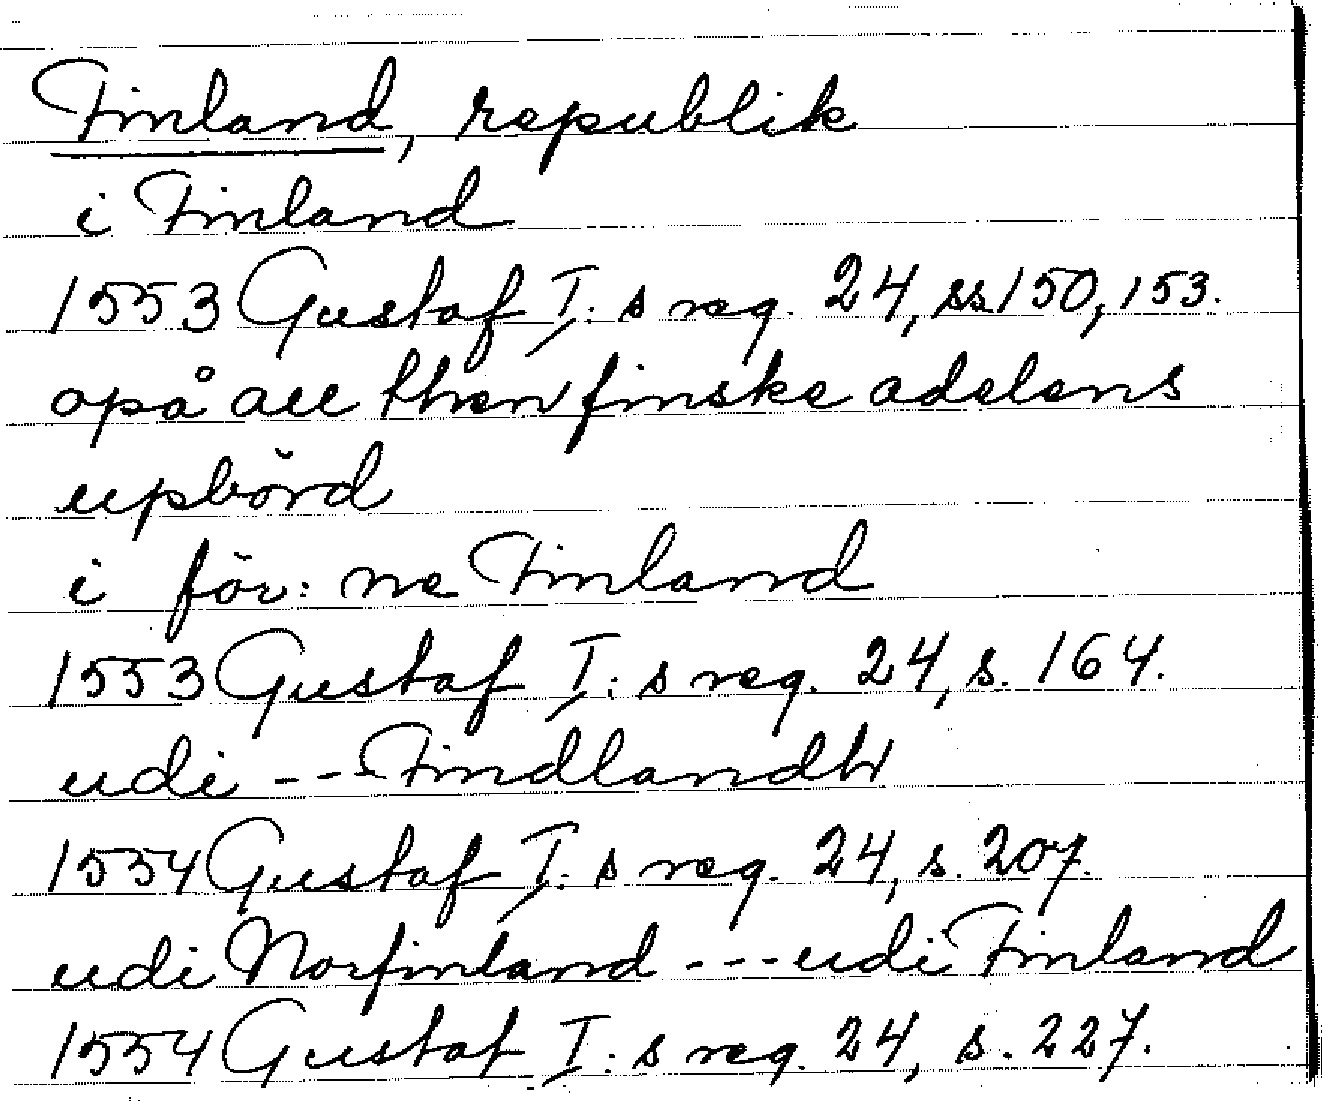 Finland, republik
i Finland
1553 Gustaf I: s reg. 24, ss 150, 153.
opå all then finske adelens
upbörd
i för: ne Finland
1553 Gustaf I: s reg. 24, s. 164.
udi --- Findlandh
1554 Gustaf I: s reg. 24, s. 207.
udi Norfinland --- udi Finland
1554 Gustaf I: s reg. 24, s. 227.